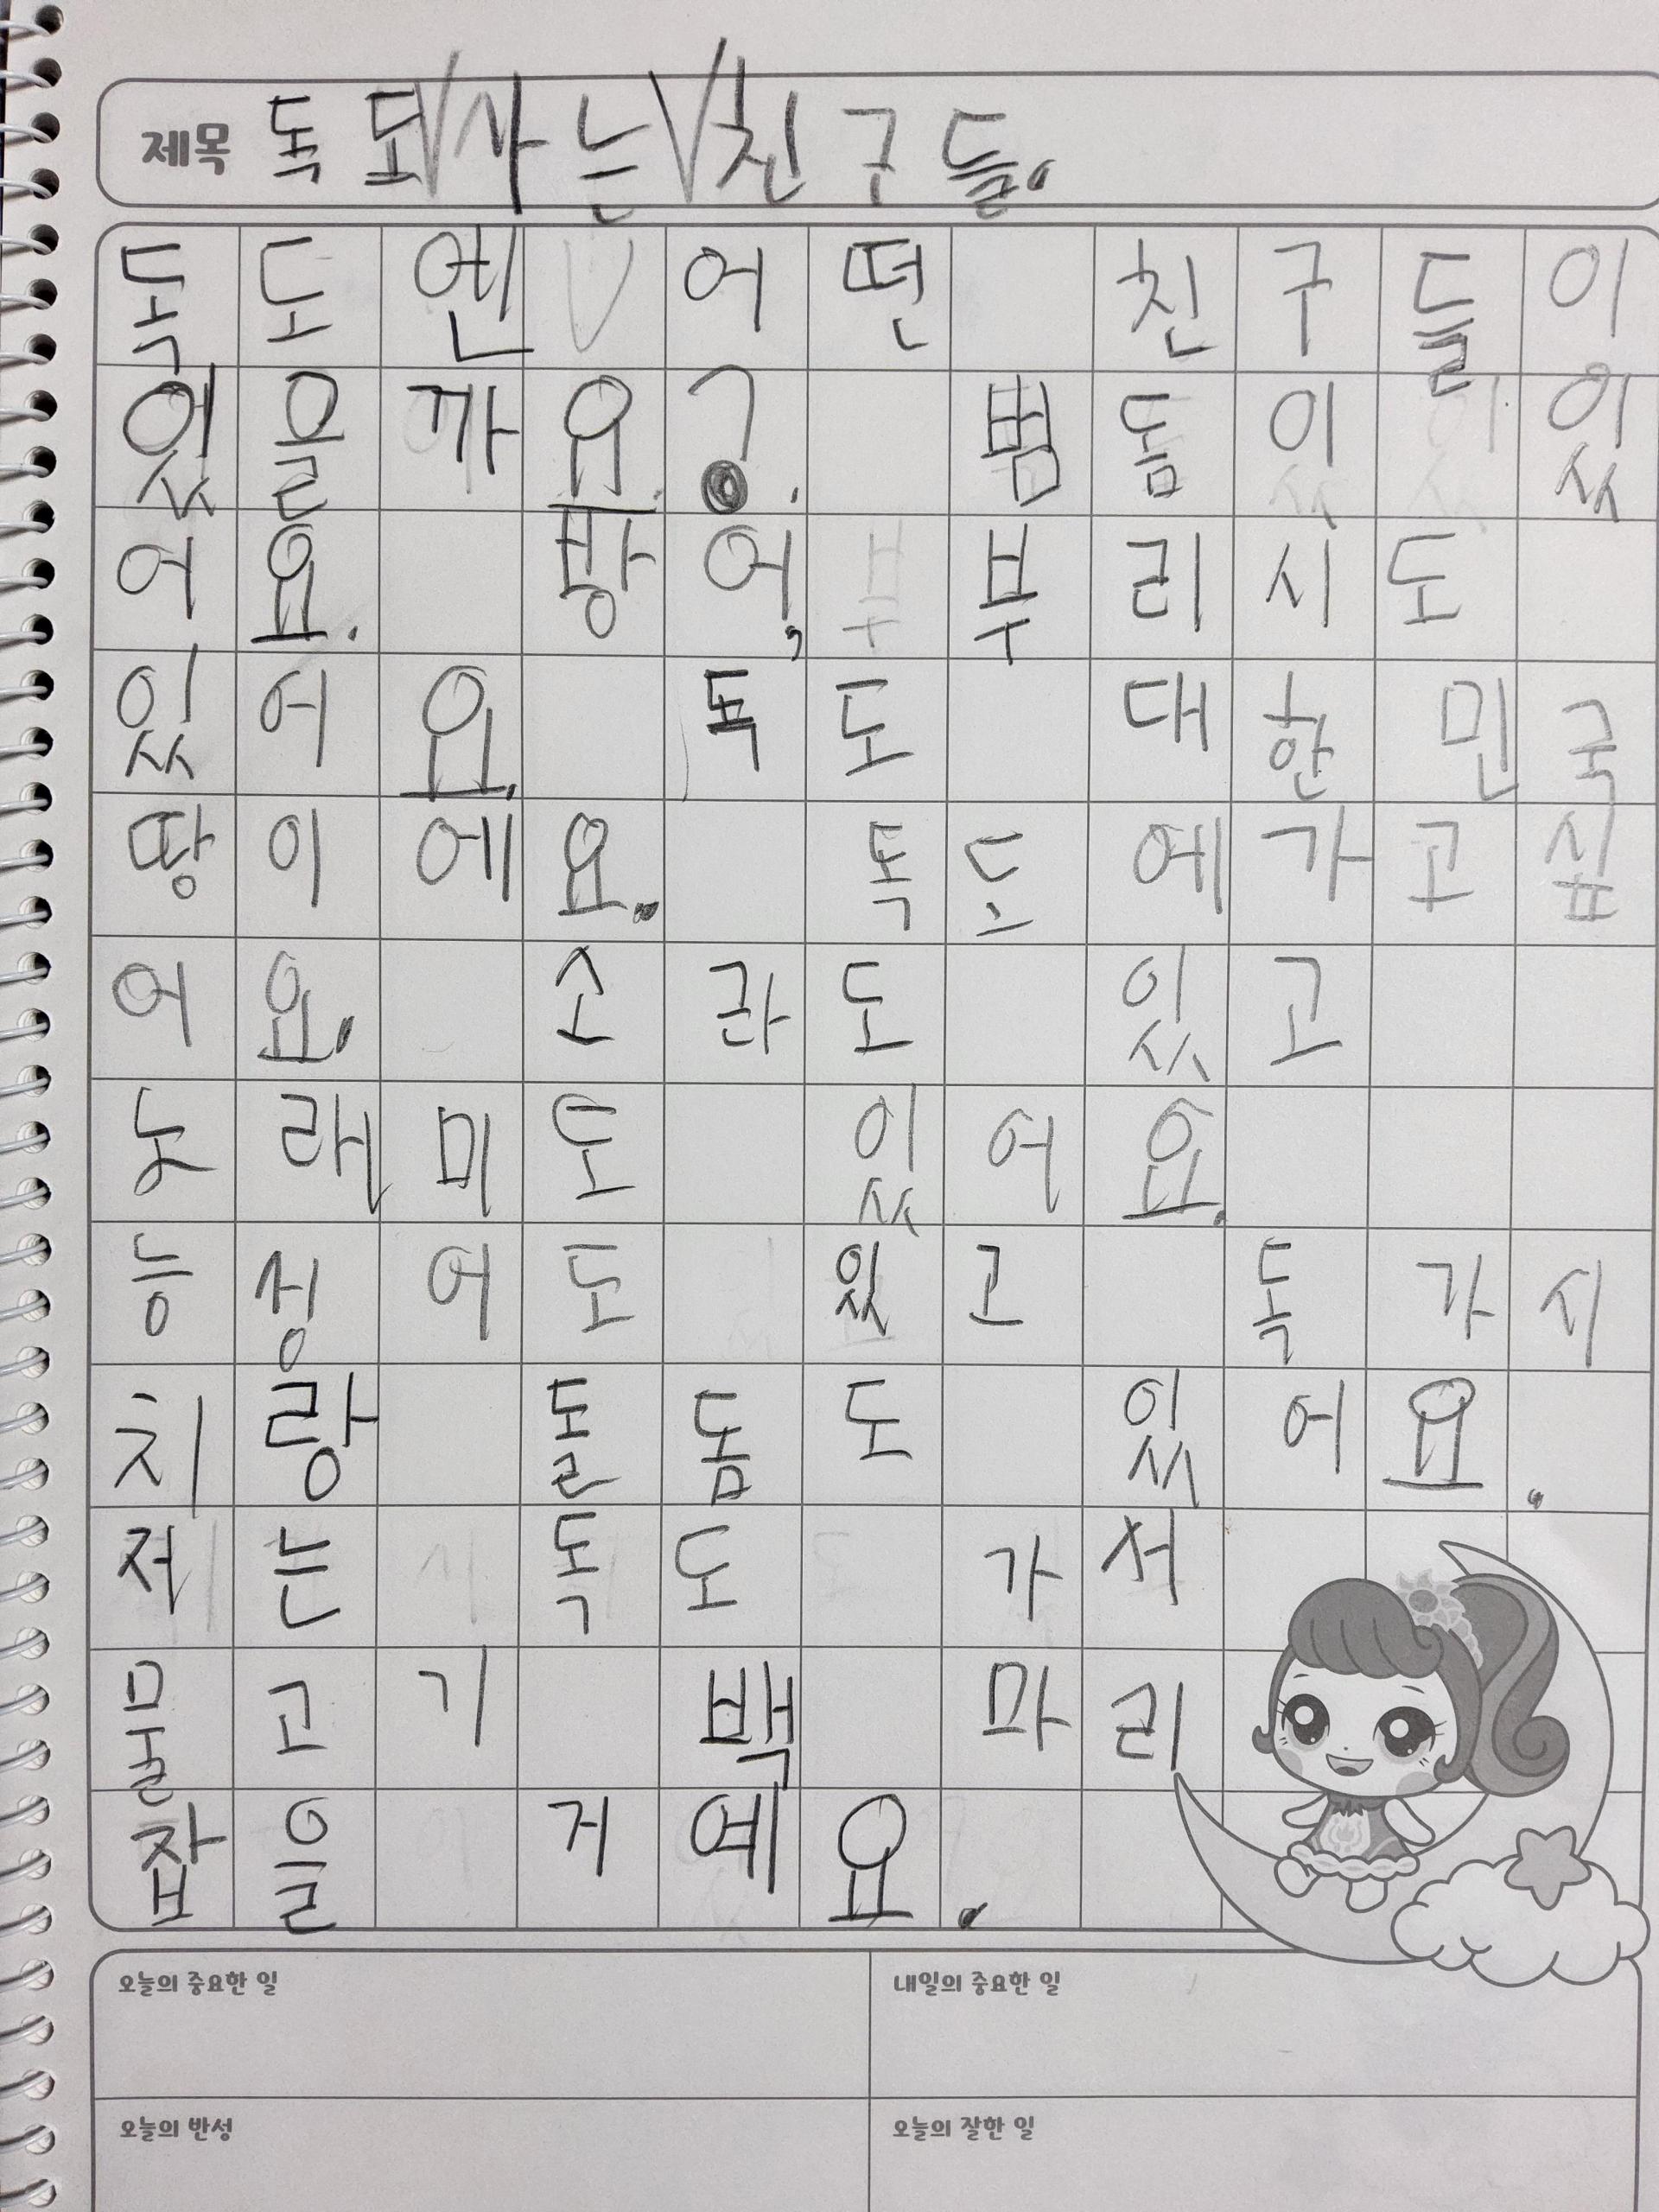 제목 독되 사는 친구들.
독도엔 어떤 친구들이
있을까요? 뱀돔이 있
어요. 방어, 부리시도
있어요. 독도 대한민국
땅이에요. 독드에가고싶
어요. 소라도 있고
놋래미도 있어요.
능정어도 있고 독가시
치랑 돌돔도 있어요.
저는 독도 가서
물고기 백 마리
잡을 거예요.
오늘의 중요한 일
내일의 중요한 일
오늘의 반성
오늘의 잘한 일